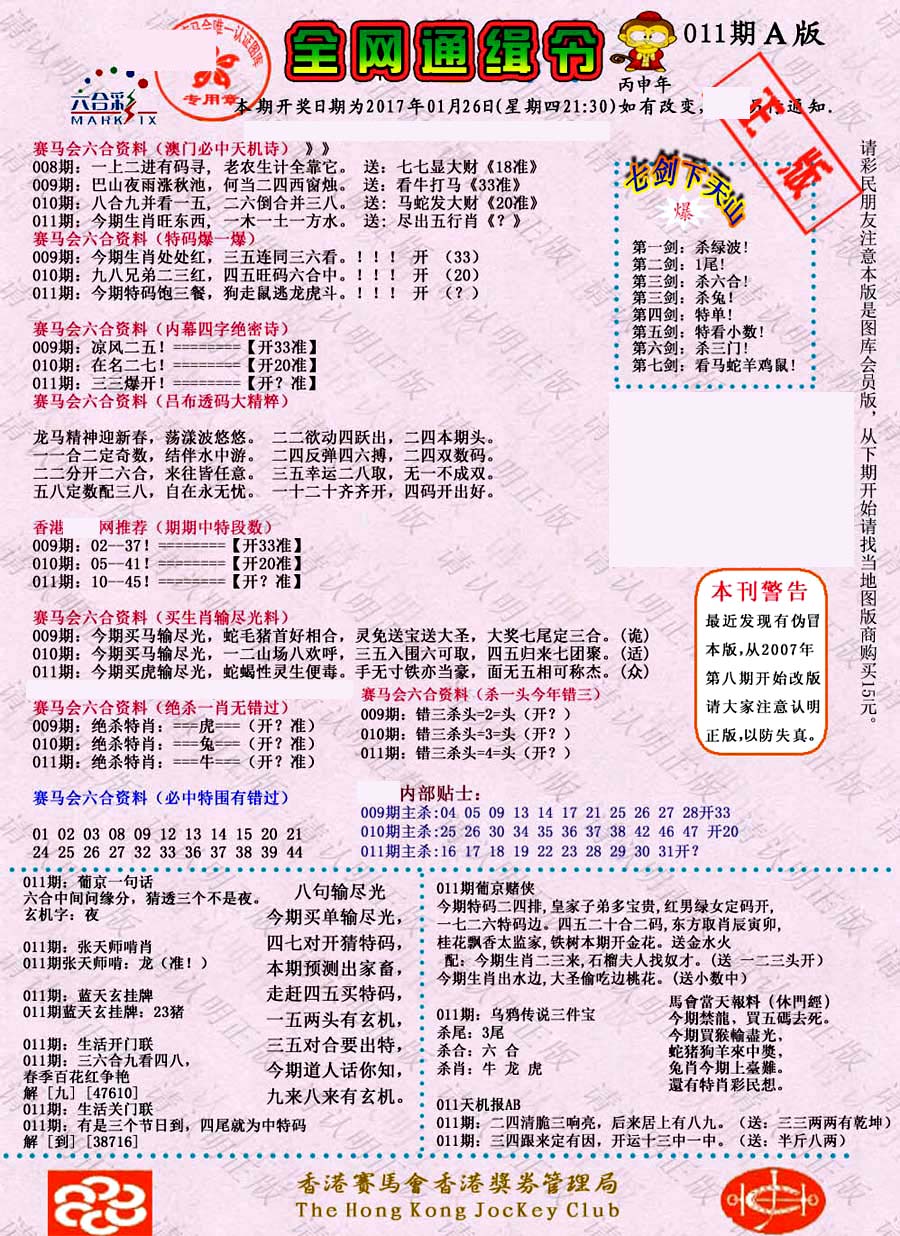 全网通缉令
丙申年
011期A版
六合彩
MARK SIX
专用章
正版
本期开奖日期为2017年01月26日(星期四21:30)如有改变,
通知.
赛马会六合资料（澳门必中天机诗）》》
008期：一上二进有码寻，老农生计全靠它。 送：七七显大财《18准》
009期：巴山夜雨涨秋池，何当二四西窗烛。 送：看牛打马《33准》
010期：八合九并看一五，二六倒合并三八。 送：马蛇发大财《20准》
011期：今期生肖旺东西，一木一土一方水。 送：尽出五行肖《？》
赛马会六合资料（特码爆一爆）
009期：今期生肖处处红，三五连同三六看。！！！ 开 （33）
010期：九八兄弟二三红，四五旺码六合中。！！！ 开 （20）
011期：今期特码饱三餐，狗走鼠逃龙虎斗。！！！ 开 （？）
赛马会六合资料（内幕四字绝密诗）
009期：凉风二五！========【开33准】
010期：在名二七！========【开20准】
011期：三三爆开！========【开？准】
赛马会六合资料（吕布透码大精粹）
龙马精神迎新春，荡漾波悠悠。 二二欲动四跃出，二四本期头。
一一合二定奇数，结伴水中游。 二四反弹四六搏，二四双数码。
二二分开二六合，来往皆任意。 三五幸运二八取，无一不成双。
五八定数配三八，自在永无忧。 一十二十齐齐开，四码开出好。
香港 网推荐（期期中特段数）
009期：02--37！========【开33准】
010期：05--41！========【开20准】
011期：10--45！========【开？准】
赛马会六合资料（买生肖输尽光料）
009期：今期买马输尽光，蛇毛猪首好相合，灵兔送宝送大圣，大奖七尾定三合。(诡)
010期：今期买马输尽光，一二山场八欢呼，三五入围六可取，四五归来七团聚。(适)
011期：今期买虎输尽光，蛇蝎性灵生便毒。手无寸铁亦当豪，面无五相可称杰。(众)
赛马会六合资料（绝杀一肖无错过）
009期：绝杀特肖：===虎===（开？准）
010期：绝杀特肖：===兔===（开？准）
011期：绝杀特肖：===牛===（开？准）
赛马会六合资料（杀一头今年错三）
009期：错三杀头=2=头（开？）
010期：错三杀头=3=头（开？）
011期：错三杀头=4=头（开？）
赛马会六合资料（必中特围有错过）
01 02 03 08 09 12 13 14 15 20 21
24 25 26 27 32 33 36 37 38 39 44
内部贴士：
009期主杀:04 05 09 13 14 17 21 25 26 27 28开33
010期主杀:25 26 30 34 35 36 37 38 42 46 47 开20
011期主杀:16 17 18 19 22 23 28 29 30 31开？
七剑下天山
爆
第一剑：杀绿波！
第二剑：1尾！
第三剑：杀六合！
第三剑：杀兔！
第四剑：特单！
第五剑：特看小数！
第六剑：杀三门！
第七剑：看马蛇羊鸡鼠！
请彩民朋友注意本版是图库会员版，从下期开始请找当地图版商购买15元。
本刊警告
最近发现有伪冒
本版,从2007年
第八期开始改版
请大家注意认明
正版,以防失真。
011期：葡京一句话
六合中间问缘分，猜透三个不是夜。
玄机字：夜
011期：张天师啃肖
011期张天师啃：龙（准！）
011期：蓝天玄挂牌
011期蓝天玄挂牌：23猪
011期：生活开门联
011期：三六合九看四八，
春季百花红争艳
解［九］[47610]
011期：生活关门联
011期：有是三个节日到，四尾就为中特码
解［到］[38716]
八句输尽光
今期买单输尽光，
四七对开猜特码，
本期预测出家畜，
走赶四五买特码，
一五两头有玄机，
三五对合要出特，
今期道人话你知，
九来八来有玄机。
011期葡京赌侠
今期特码二四排,皇家子弟多宝贵,红男绿女定码开,
一七二六特码边。四五二十合二码,东方取肖辰寅卯,
桂花飘香太监家,铁树本期开金花。送金水火
配：今期生肖二三来,石榴夫人找奴才。(送 一二三头开)
今期生肖出水边,大圣偷吃边桃花。(送小数中)
011期：乌鸦传说三件宝
杀尾：3尾
杀合：六 合
杀肖：牛 龙 虎
馬會當天報料（休門經）
今期禁龍、買五碼去死。
今期買猴輸盡光，
蛇猪狗羊來中獎，
兔肖今期上臺難。
還有特肖彩民想。
011天机报AB
011期：二四清脆三响亮，后来居上有八九。（送：三三两两有乾坤）
011期：三四跟来定有因，开运十三中一中。（送：半斤八两）
香港賽馬會香港獎券管理局
The Hong Kong JocKey Club